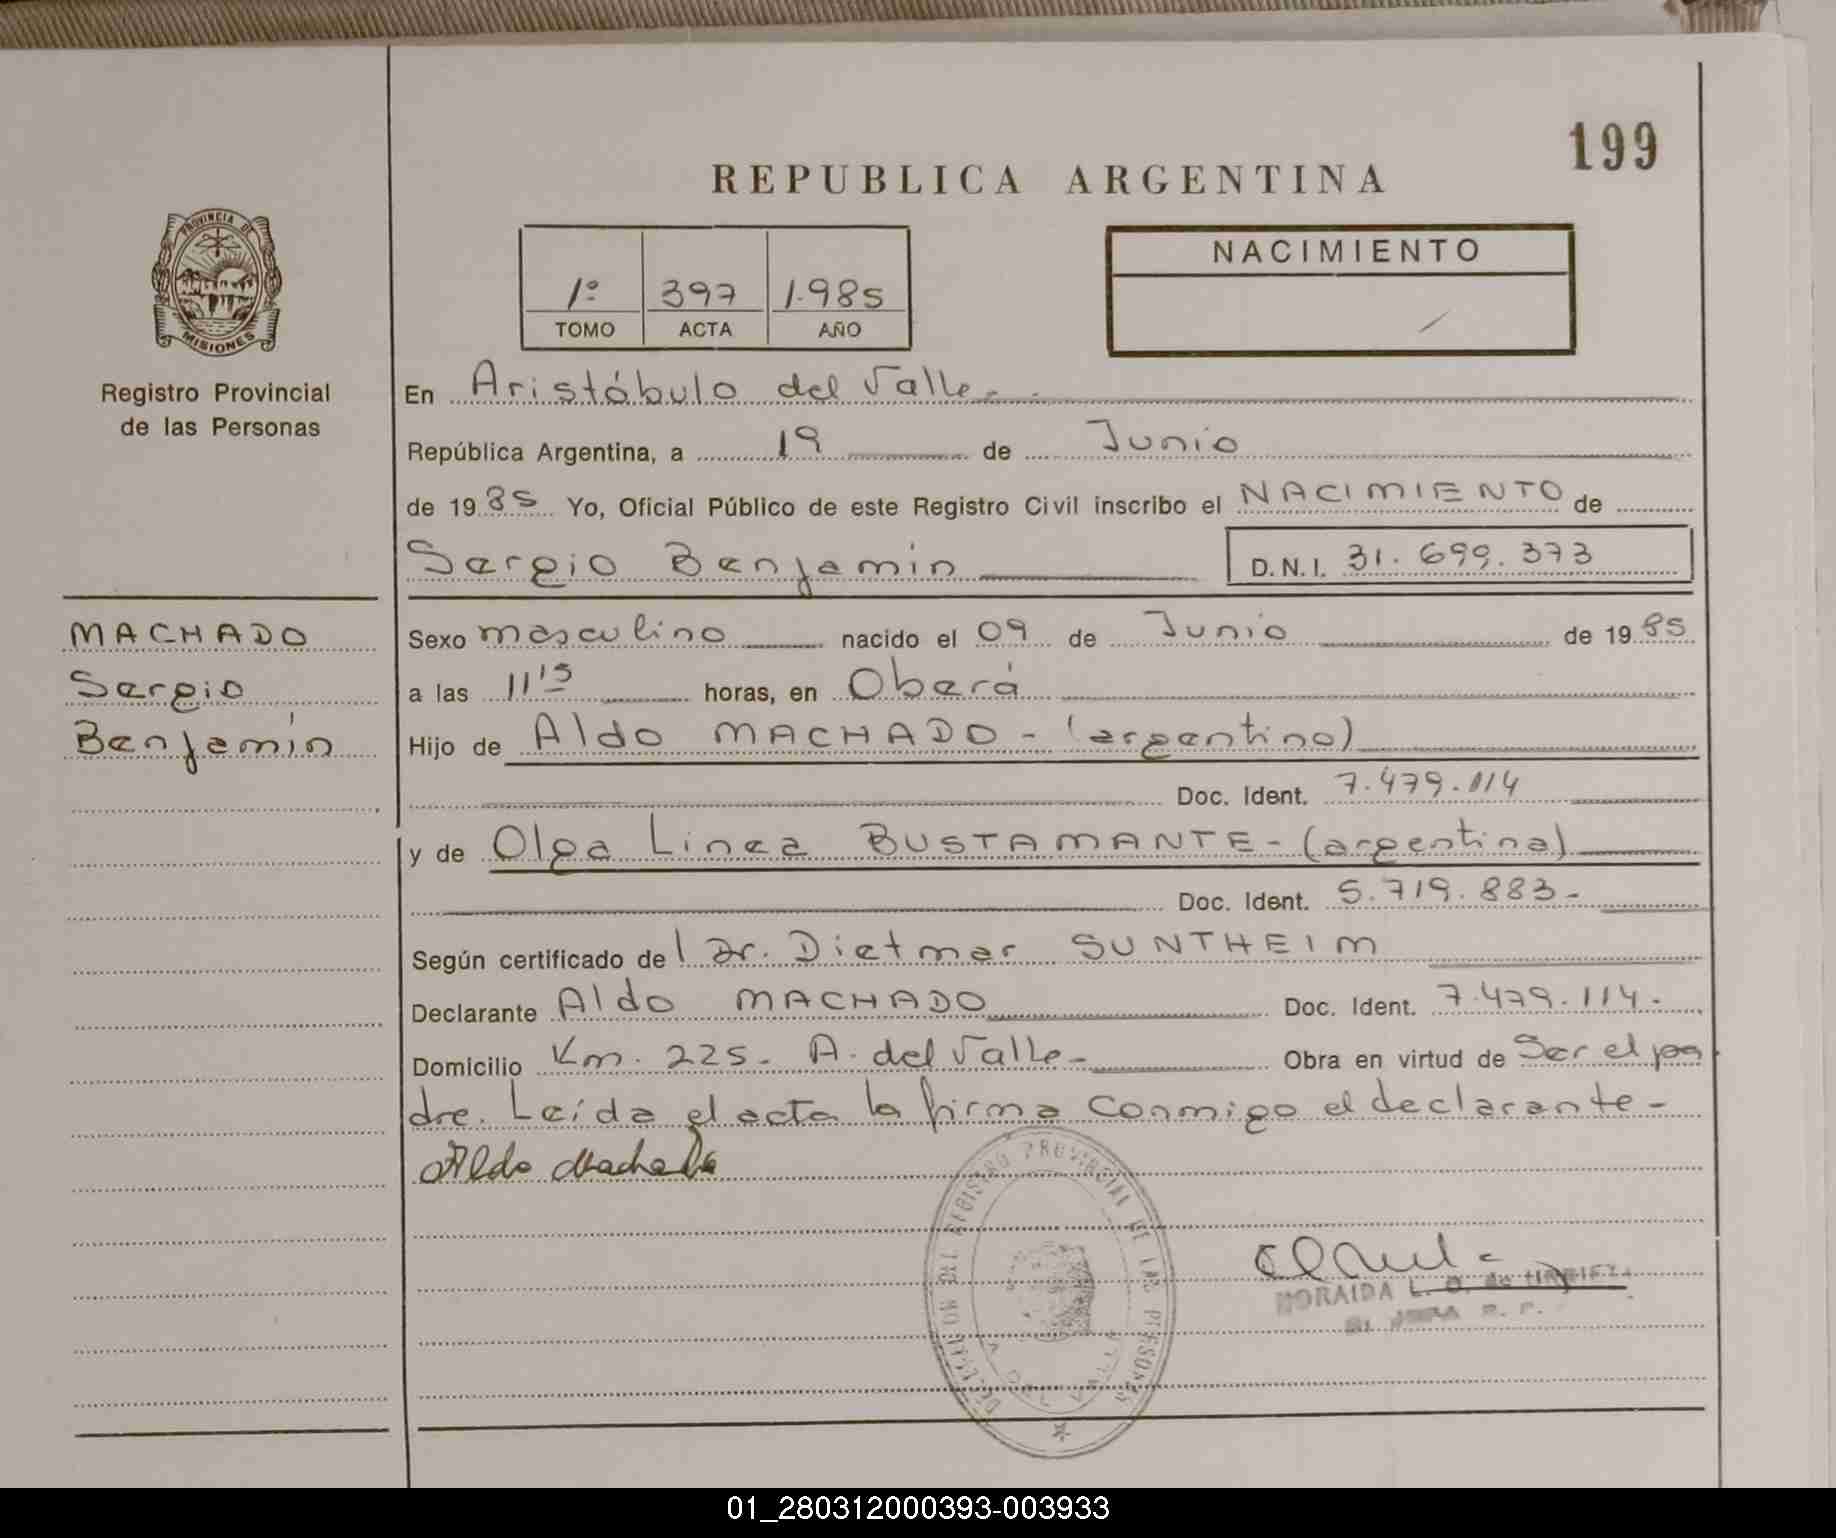 199
REPUBLICA ARGENTINA
PROVINCIA DE
MISIONES
Registro Provincial
de las Personas
1º 397 1.985
TOMO ACTA AÑO
NACIMIENTO
En Aristóbulo del Valle-
República Argentina, a 19 de Junio
de 19 85 Yo, Oficial Público de este Registro Civil inscribo el NACIMIENTO de
Sergio Benjamin D.N.I. 31.699.373
MACHADO
Sergio
Benjamín
Sexo masculino nacido el 09 de Junio de 19 85
a las 11'15 horas, en Oberá
Hijo de Aldo MACHADO - (argentino)
Doc. Ident. 7.479.114
y de Olga Linea BUSTAMANTE - (argentina)
Doc. Ident. 5.719.883-
Según certificado del Dr. Dietmar SUNTHEIM
Declarante Aldo MACHADO Doc. Ident. 7.479.114.
Domicilio Km. 225- A. del Valle- Obra en virtud de Ser el pa
dre. Leída el acta la firma conmigo el declarante-
Aldo Machado
REGISTRO PROVINCIAL DE LAS PERSONAS
NORAIDA L. O. de
01_280312000393-003933